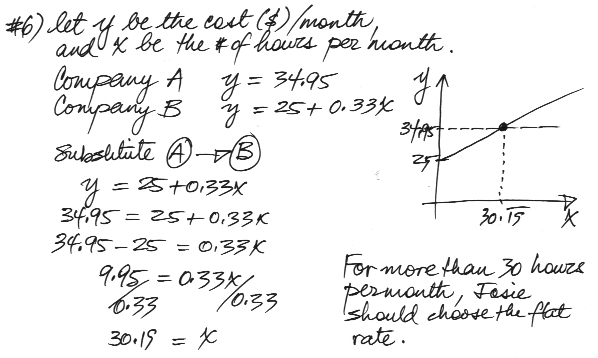 #6) let y be the cost ($)/month,
and x be the # of hours per month.
Company A y = 34.95
Company B y = 25 + 0.33x
Substitute Ⓐ → Ⓑ
y = 25 + 0.33x
34.95 = 25 + 0.33x
34.95 - 25 = 0.33x
9.95 / 0.33 = 0.33x / 0.33
30.15 = x
y
34.95
25
30.15
x
For more than 30 hours
per month, Josie
should choose the flat
rate.